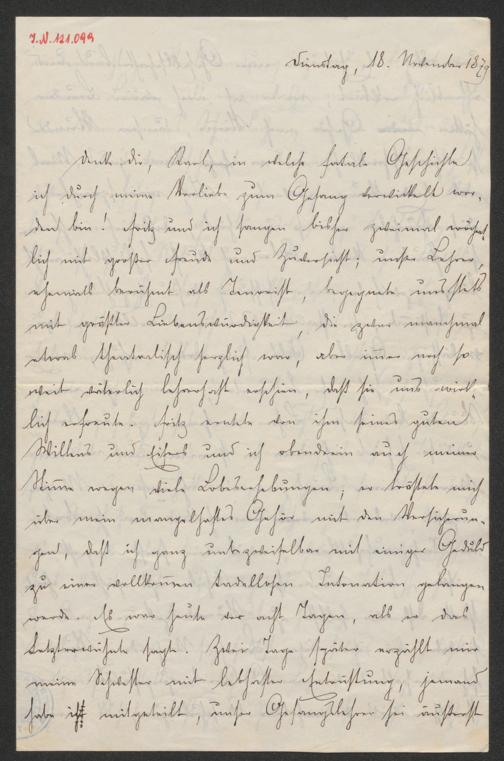 J.N. 121.099
Dienstag, 18. November 1879
Denke dir, Karl, in welche fatale Geschichte
ich durch meine Vorliebe zum Gesang verwickelt wor-
den bin! Fritz und ich sangen bisher zweimal wöchent-
lich mit großer Freude und Zuversicht; unser Lehrer,
ehemals berühmt als Tenorist, begegnete uns stets
mit größter Liebenswürdigkeit, die zwar manchmal
etwas theatralisch herzlich war, aber immer noch so
weit väterlich lehrerhaft erschien, daß sie uns wirk-
lich erfreute. Fritz erntete von ihm seines guten
Willens und Eifers und ich obendrein auch meiner
Stimme wegen viele Lobeserhebungen; er tröstete mich
über mein mangelhaftes Gehör mit den Versicherun-
gen, daß ich ganz unbezweifelbar mit einiger Geduld
zu einer vollkommen tadellosen Intonation gelangen
werde. Es war heute vor acht Tagen, als er das
Letzterwähnte sagte. Zwei Tage später erzählt mir
meine Schwester mit lebhafter Entrüstung, jemand
habe ihr mitgeteilt, unser Gesangslehrer sei äußerst